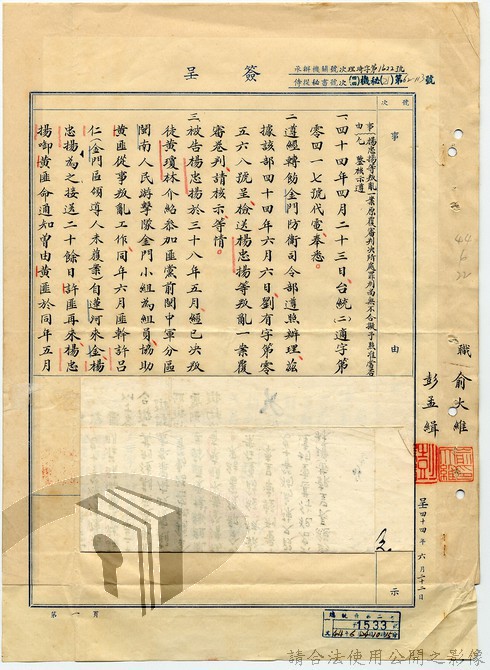 簽呈
承辦機關號次理琦字第1622號
侍從秘書號次(44)機秘(乙)第62-113號
號次
事由
示
事由
楊忠揚等叛亂一案原覆審判決所處罪刑尚無不合擬予照准當否乞鑒核示遵
一、四十四年四月二十三日台統(二)適字第
零四一七號代電奉悉。
二、遵經轉飭金門防衛司令部遵照辦理茲
據該部四十四年六月六日劉有字第零
五六八號呈檢送楊忠揚等叛亂一案覆
審卷判請核示等情。
三、被告楊忠揚於三十八年五月經已決叛
徒黃瓊林介紹參加匪黨前閩中軍分區
閩南人民游擊隊金門小組為組員協助
黃匪從事叛亂工作同年六月匪幹許呂
仁(金門區領導人未獲案)自蓮河來金楊
忠揚為之接送二十餘日許匪再來楊忠
揚啣黃匪命通知曾由黃匪於同年五月
職 俞大維
彭孟緝
呈四十四年六月二十二日
44
6
22
第一頁
1533
請合法使用公開之影像